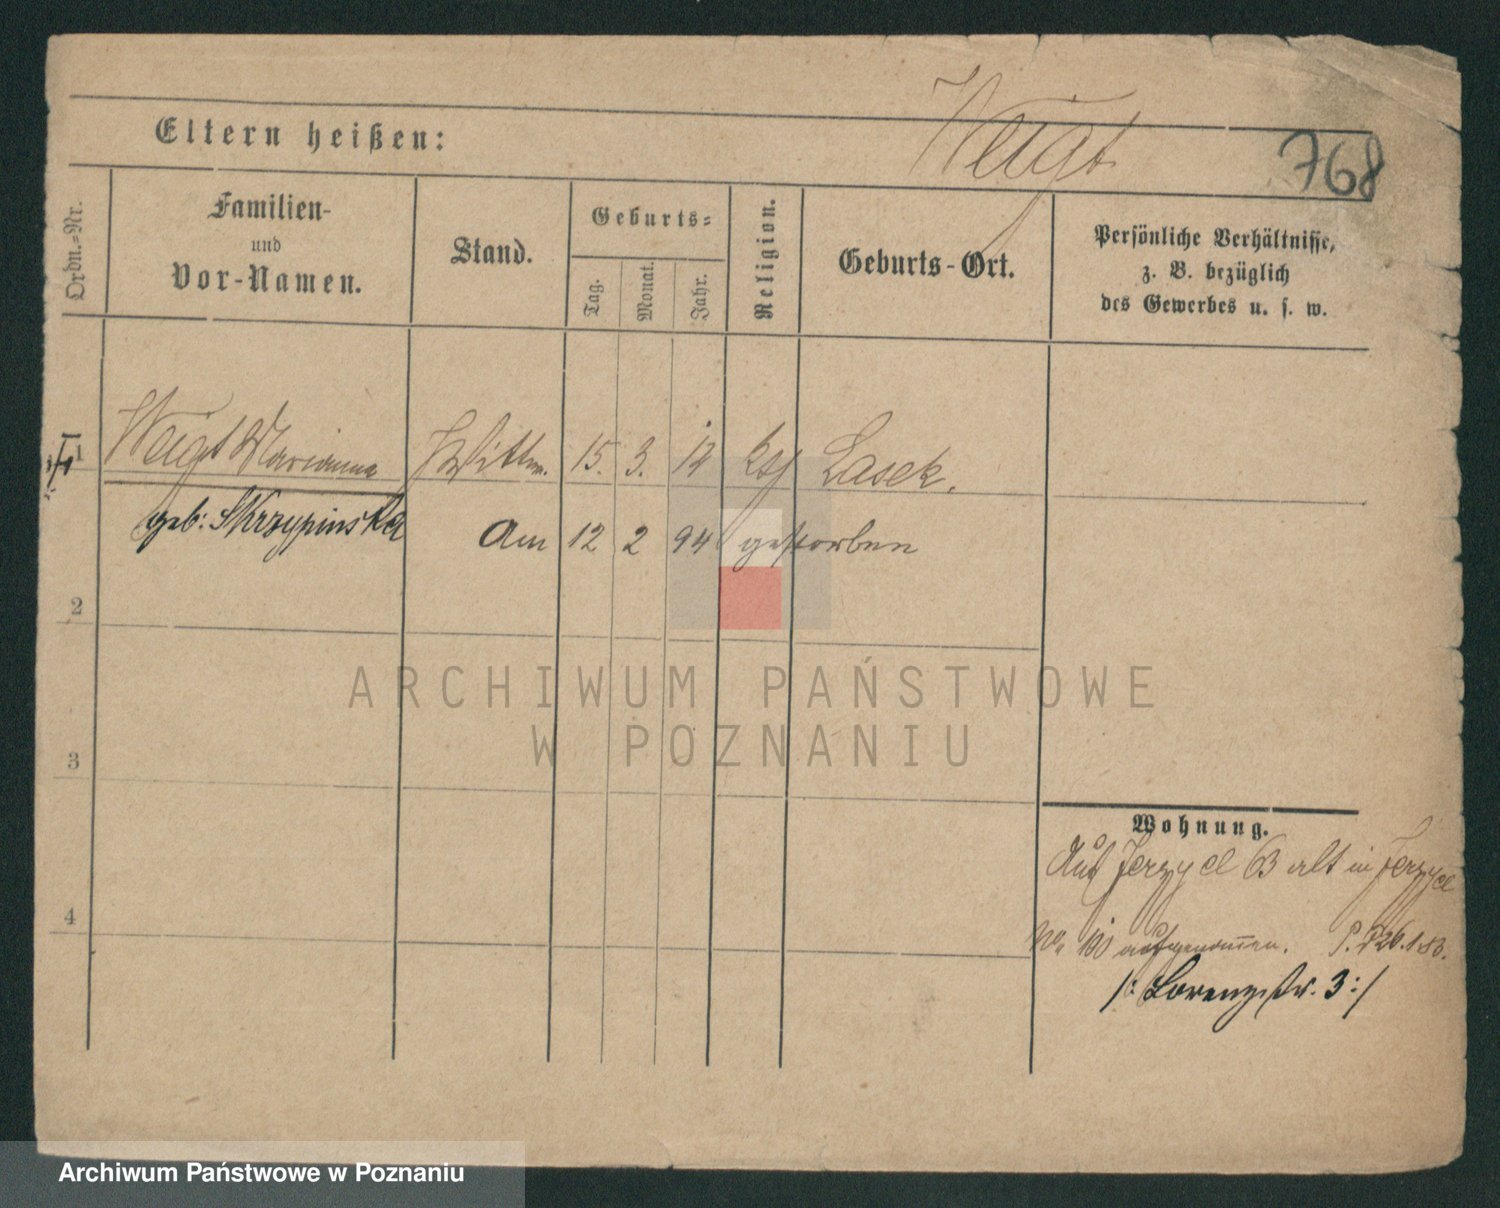 Weigt
768
Eltern heißen:
Ordn.-Nr.
Familien-
und
Vor-Namen.
Stand.
Geburts-
Tag.
Monat.
Jahr.
Religion.
Geburts-Ort.
Persönliche Verhältnisse,
z. B. bezüglich
des Gewerbes u. s. w.
1 Weigt Marianna Wittw. 15. 3. 12 Lasek.
geb: Skrzypinska Am 12 2 94 gestorben
2
3
4
Wohnung.
Auf Jerzyce 63 alt in Jerzyce
No. aufgenommen. P. 26.1.83.
/: Lorenzstr. 3 :/
ARCHIWUM PAŃSTWOWE
W POZNANIU
Archiwum Państwowe w Poznaniu